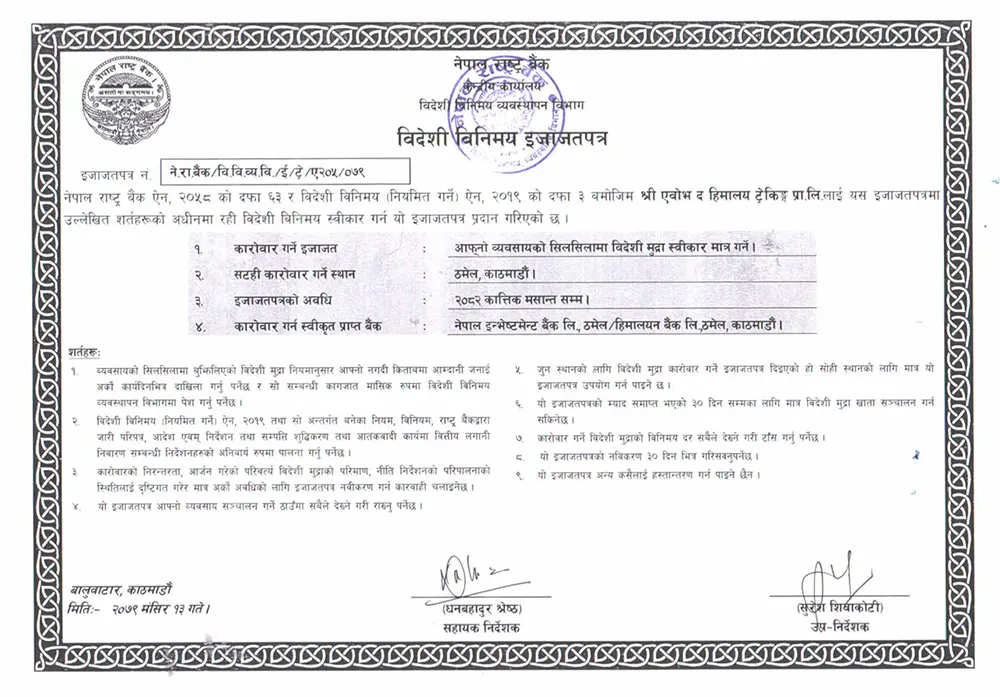 नेपाल राष्ट्र बैंक
केन्द्रीय कार्यालय
विदेशी विनिमय व्यवस्थापन विभाग
विदेशी बिनिमय इजाजतपत्र
इजाजतपत्र नं. ने.रा.बैंक/वि.वि.व्य.वि./ई/ट्रे/ए२०५/०७९
नेपाल राष्ट्र बैंक ऐन, २०५८ को दफा ६३ र विदेशी विनिमय (नियमित गर्ने) ऐन, २०१९ को दफा ३ बमोजिम श्री एवोभ द हिमालय ट्रेकिङ्ग प्रा.लि.लाई यस इजाजतपत्रमा
उल्लेखित शर्तहरूको अधीनमा रही विदेशी विनिमय स्वीकार गर्न यो इजाजतपत्र प्रदान गरिएको छ ।
१. कारोवार गर्ने इजाजत : आफ्नो ब्यवसायको सिलसिलामा विदेशी मुद्रा स्वीकार मात्र गर्ने।
२. सटही कारोवार गर्ने स्थान : ठमेल, काठमाडौं।
३. इजाजतपत्रको अवधि : २०८२ कात्तिक मसान्त सम्म।
४. कारोवार गर्न स्वीकृत प्राप्त बैंक : नेपाल इन्भेष्टमेन्ट बैंक लि., ठमेल/हिमालयन बैंक लि.,ठमेल, काठमाडौं।
शर्तहरू:
१. व्यवसायको सिलसिलामा बुझिलिएको विदेशी मुद्रा नियमानुसार आफ्नो नगदी किताबमा आम्दानी जनाई
अर्को कार्यदिनभित्र दाखिला गर्नु पर्नेछ र सो सम्बन्धी कागजात मासिक रुपमा विदेशी विनिमय
व्यवस्थापन विभागमा पेश गर्नु पर्नेछ ।
२. विदेशी विनिमय (नियमित गर्ने) ऐन, २०१९ तथा सो अन्तर्गत बनेका नियम, विनियम, राष्ट्र बैंकद्वारा
जारी परिपत्र, आदेश एवम् निर्देशन तथा सम्पत्ति शुद्धिकरण तथा आतंकवादी कार्यमा वित्तीय लगानी
निवारण सम्बन्धी निर्देशनहरुको अनिवार्य रुपमा पालना गर्नु पर्नेछ ।
३. कारोबारको निरन्तरता, आर्जन गरेको परिवर्त्य विदेशी मुद्राको परिमाण, नीति निर्देशनको परिपालनाको
स्थितिलाई दृष्टिगत गरेर मात्र अर्को अवधिको लागि इजाजतपत्र नवीकरण गर्न कारवाही चलाइनेछ ।
४. यो इजाजतपत्र आफ्नो व्यवसाय सञ्चालन गर्ने ठाउँमा सबैले देख्ने गरी राख्नु पर्नेछ ।
५. जुन स्थानको लागि विदेशी मुद्रा कारोबार गर्ने इजाजतपत्र दिइएको हो सोही स्थानको लागि मात्र यो
इजाजतपत्र उपयोग गर्न पाइने छ ।
६. यो इजाजतपत्रको म्याद समाप्त भएको ३० दिन सम्मका लागि मात्र विदेशी मुद्रा खाता सञ्चालन गर्न
सकिनेछ ।
७. कारोबार गर्ने विदेशी मुद्राको बिनिमय दर सबैले देख्ने गरी टाँस गर्नु पर्नेछ ।
८. यो इजाजतपत्रको नविकरण ३० दिन भित्र गरिसक्नुपर्नेछ ।
९. यो इजाजतपत्र अन्य कसैलाई हस्तान्तरण गर्न पाइने छैन ।
बालुवाटार, काठमाडौं
मितिः- २०७९ मंसिर १३ गते।
(धनबहादुर श्रेष्ठ)
सहायक निर्देशक
(सुरेश शिवाकोटी)
उप-निर्देशक